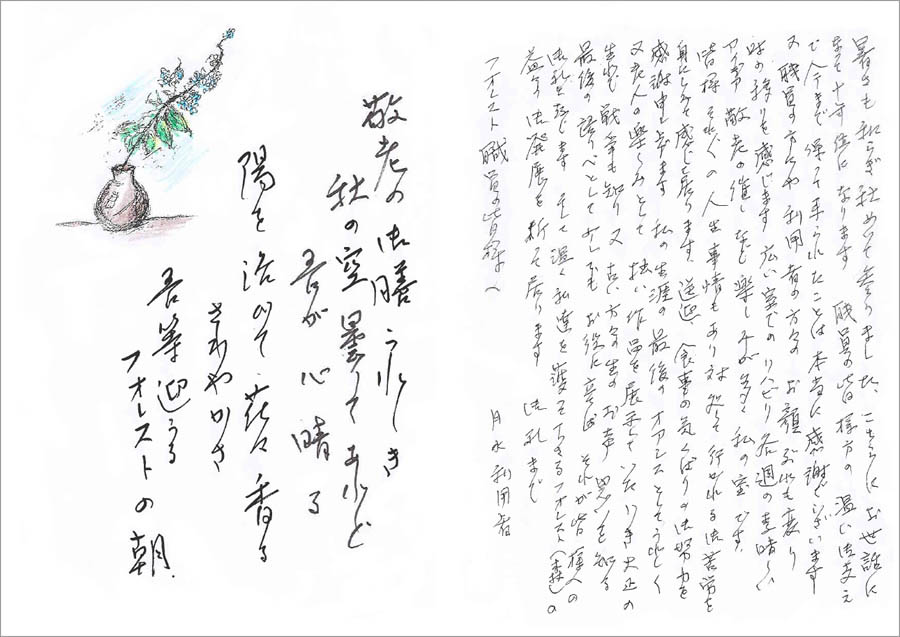 暑さも和らぎ秋めいて参りました。こちらにお世話に
なって十ヶ月位になります 職員の皆様方の温い御支え
で今まで保って来られたことは本当に感謝でございます
又職員の方々や利用者の方々のお顔ぶれも変り
時の移りを感じます 広い室でのリハビリ各週の素晴らしい
行事 敬老の催しなど楽しみが多く私の宝です。
皆様それぞれの人生事情もあり対処して行かれる御苦労を
身にしみて感じて居ります。送迎、食事の気くばりの御努力を
感謝申し上げます 私の生涯の最後のオアシスとしてうれしく
又老人の楽しみとして拙い作品を展示していただき大正の
生れ 戦争も知り又古い方々の生のお声 思いを知る
最後の語りべとして少しでもお役に立てば それが皆様への
御礼と存じます そして温く私達を護って下さるフォレスト(森)の
益々御発展を祈って居ります 御礼まで
月水利用者
フォレスト職員の皆様へ
敬老の御膳うれしき
秋の空曇りてあれど
吾が心晴る
陽を浴びて花々香る
さわやかさ
吾等迎うる
フォレストの朝